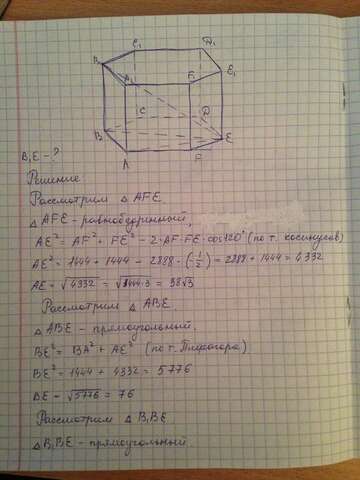 C₁ D₁
B₁ E₁
A₁ F₁
C D
B E
A F
B₁E - ?
Решение
Рассмотрим △ AFE
△ AFE - равнобедренный,
AE² = AF² + FE² - 2·AF·FE·cos120° (по т. косинусов)
AE² = 1444 + 1444 - 2888·(-1/2) = 2888 + 1444 = 4332
AE = √4332 = √1444·3 = 38√3
Рассмотрим △ ABE.
△ ABE - прямоугольный.
BE² = BA² + AE² (по т. Пифагора)
BE² = 1444 + 4332 = 5776
BE = √5776 = 76
Рассмотрим △ B₁BE
△ B₁BE - прямоугольный.